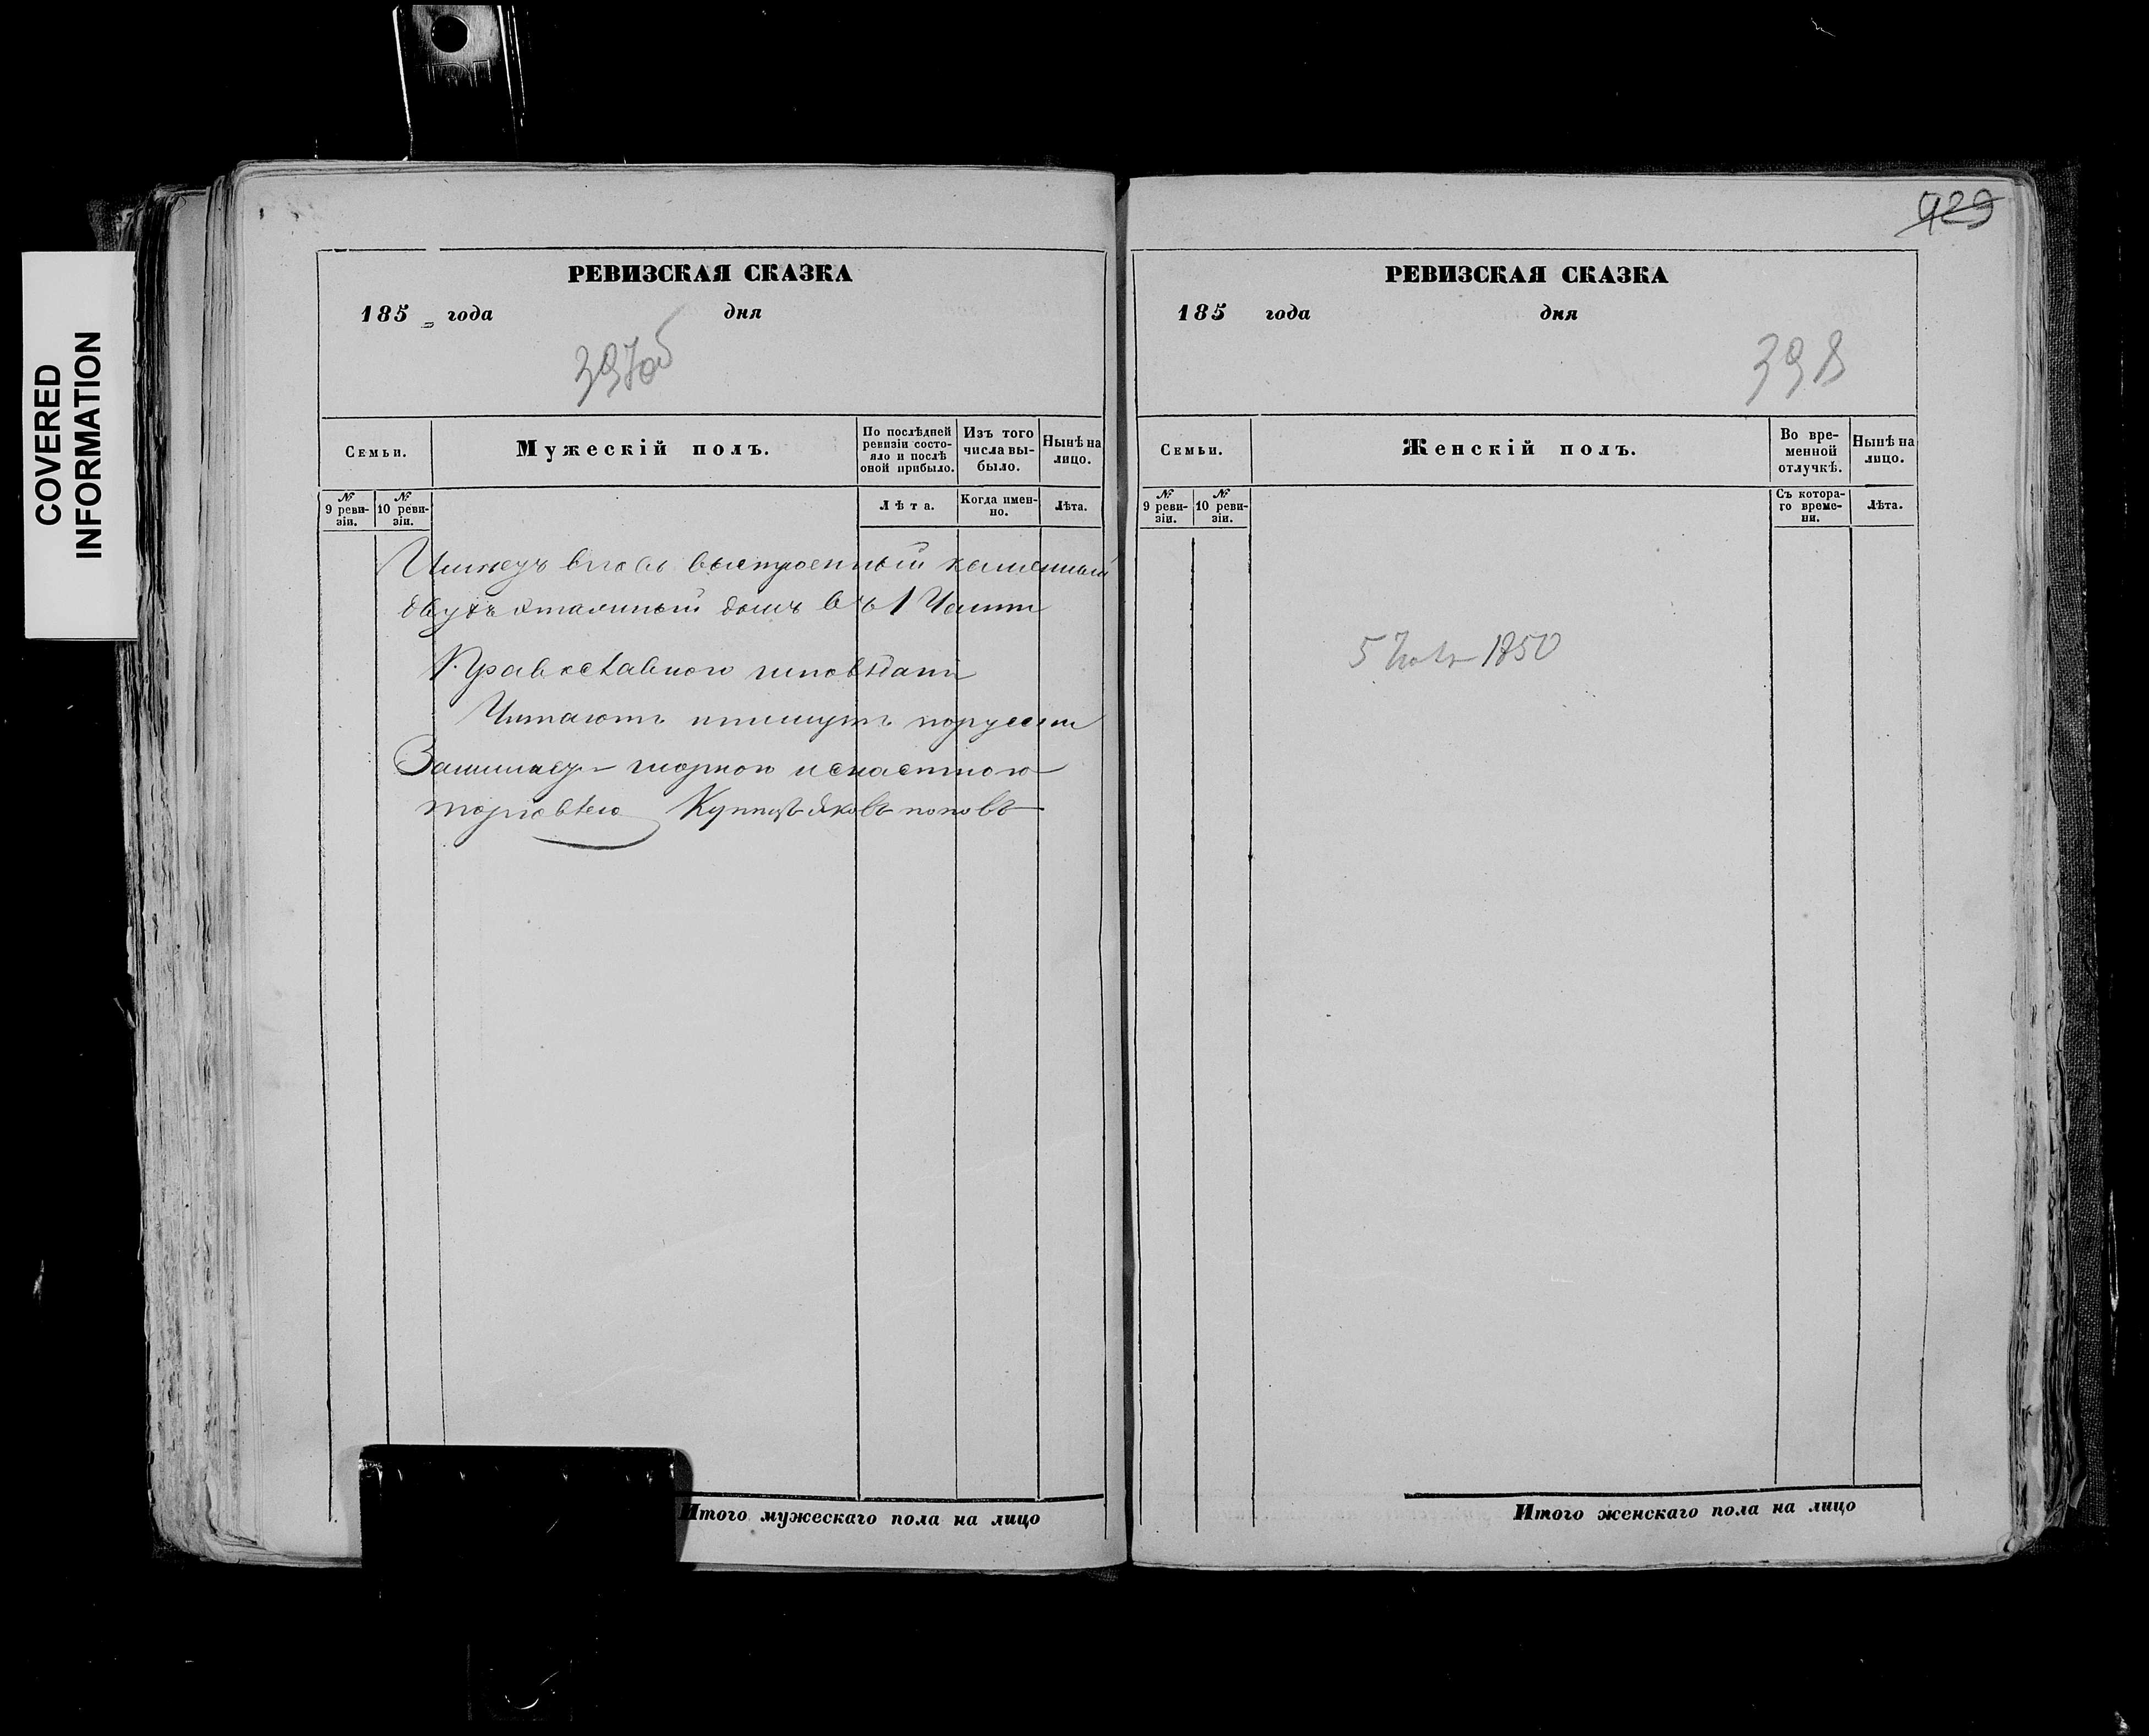 COVERED
INFORMATION
РЕВИЗСКАЯ СКАЗКА
185 года дня
397об
Семьи.
Мужескій полъ.
По послѣдней ревизіи состояло и послѣ оной прибыло.
Изъ того числа выбыло.
Нынѣ на лицо.
№ 9 ревизіи.
№ 10 ревизіи.
Лѣта.
Когда именно.
Лѣта.
Имѣетъ вновь выстроенный каменный
двухъ этажный домъ въ 1 Части
Православного
Читаютъ ипишутъ порусски
торговлею Купецъ Яковъ поповъ
Итого мужескаго пола на лицо
429
РЕВИЗСКАЯ СКАЗКА
185 года дня
398
Семьи.
Женскій полъ.
Во временной отлучкѣ.
Нынѣ на лицо.
№ 9 ревизіи.
№ 10 ревизіи.
Съ котораго времени.
Лѣта.
5 1850
Итого женскаго пола на лицо